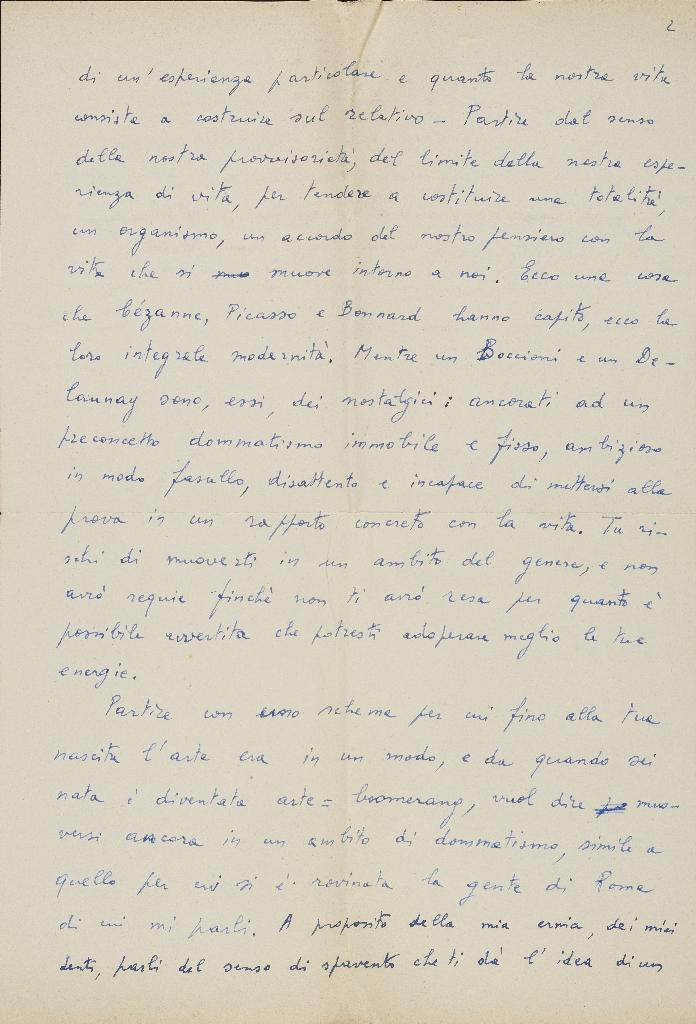 2
di un' esperienza particolare e quanto la nostra vita
consista a costruire sul relativo – Partire dal senso
della nostra provvisorietà, del limite della nostra espe-
rienza di vita, per tendere a costituire una totalità,
un organismo, un accordo del nostro pensiero con la
vita che si muove intorno a noi. Ecco una cosa
che Cézanne, Picasso e Bonnard hanno capito, ecco la
loro integrale modernità. Mentre un Boccioni e un De-
launay sono, essi, dei nostalgici: ancorati ad un
preconcetto dommatismo immobile e fisso, ambizioso
in modo fasullo, disattento e incapace di mettersi alla
prova in un rapporto concreto con la vita. Tu ri-
schi di muoverti in un ambito del genere, e non
avrò requie finchè non ti avrò resa per quanto è
possibile avvertita che potresti adoperare meglio le tue
energie.
Partire con uno schema per cui fino alla tua
nascita l'arte era in un modo, e da quando sei
nata è diventata arte = boomerang, vuol dire muo-
versi ancora in un ambito di dommatismo, simile a
quello per cui si è rovinata la gente di Roma
di cui mi parli. A proposito della mia ernia, dei miei
denti, parli del senso di spavento che ti dà l' idea di un